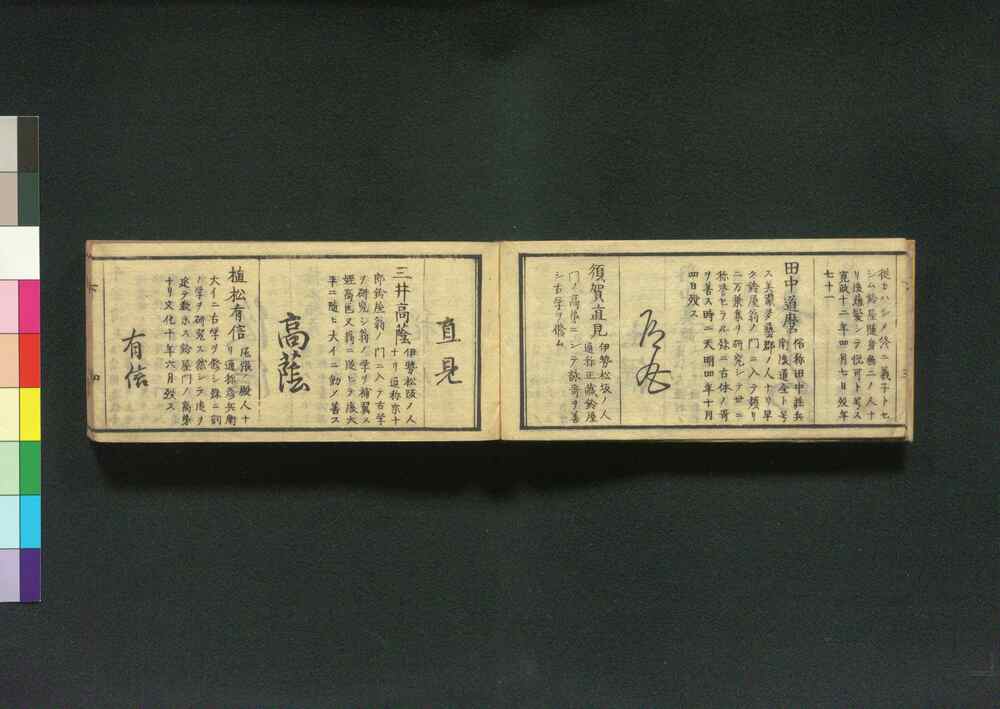 従ヒハシメ終ニ義子トセ
シム鈴屋随身無二ノ人ナ
リ後薙髪シテ悦可ト号ス
寛政十二年四月七日歿年
七十一
田中道麿 俗称田中荘兵
衛後道全ト号
ス美濃多藝郡ノ人ナリ早
ク鈴屋翁ノ門ニ入テ頻リ
ニ万葉集ヲ研究シテ世ニ
称誉セラル殊ニ古体ノ哥
ヲ善ス時ニ天明四年十月
四日歿ス
須賀直見 伊勢松坂ノ人
通称正蔵鈴屋
門ノ高弟ニシテ詠哥ヲ善
シ古学ヲ脩ム
直見
三井高蔭 伊勢松坂ノ人
ナリ通称宗十
郎鈴屋翁ノ門ニ入テ古学
ヲ研究シ翁ノ学ヲ補翼ス
高蔭
植松有信 尾張ノ殿人ナ
リ通称忠兵衛
大イニ古学ヲ脩シ殊ニ訓
ノ学ヲ研究ス然シテ後ヲ
十リ文化十年六月歿ス
有信